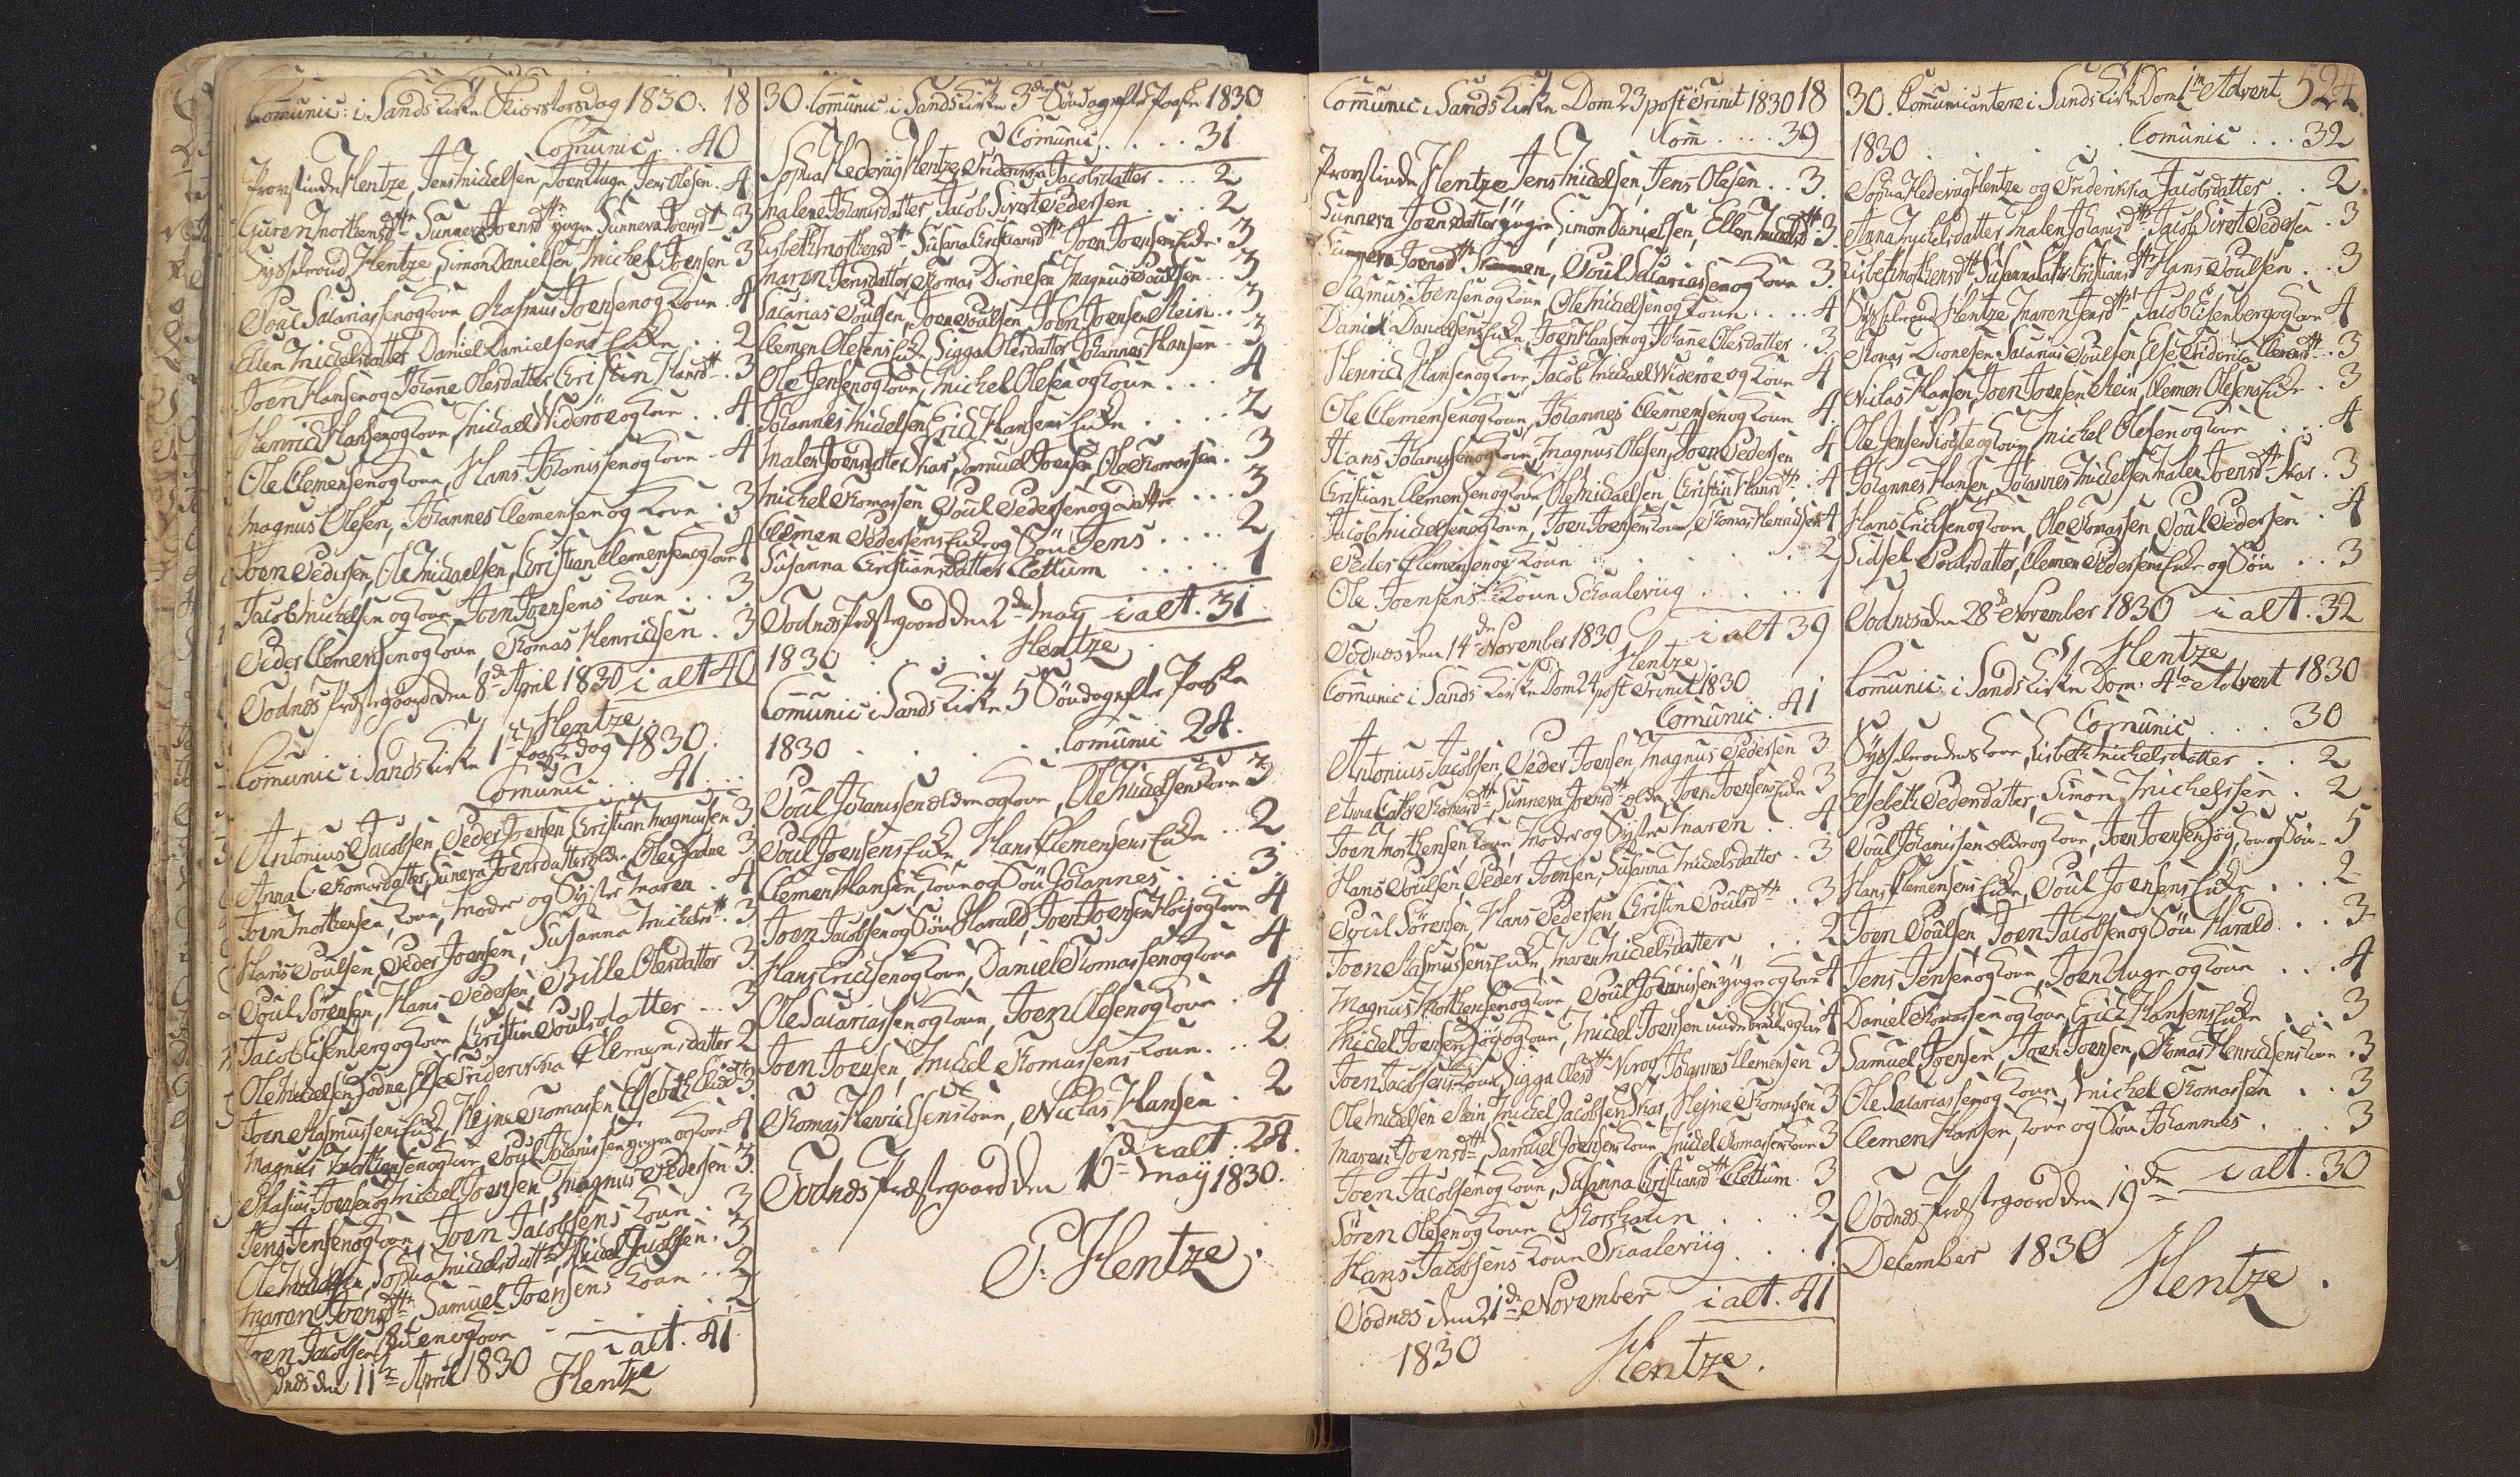 Comunic: i Sands Kirke Skiærtorsdag 1830. 18
Comunic . . 40
Provstinde Hentze, Jens Michelsen, Joen Unge, Jens Olesen . 4
Guren Mortensdttr Sunnera Joensdttr yngre Sunneva Joensdttr 3
Sysselmand Hentze, Simon Danielsen, Michel Joensen 3
Poul Sacariassen og Kone, Rasmus Joensen og Kone . 4
Ellen Michelsdatter Daniel Danielsens Enke . . 2
Joen Hansen og Johanne Olesdatter Cristin Hansdttr . 3
Henrich Hansen og Kone, Michael Widerøe og Kone . . 4
Ole Clemensen og Kone, Hans Johanissen og Kone . 4
Magnus Olesen, Johannes Clemensen og Kone . 3
Joen Pedersen, Ole Michaelsen, Christian Clemensen og Kone 4
Jacob Michelsen og Kone, Joen Joensens Kone . . 3
Peder Clemensen og Kone, Thomas Henrichsen . 3
Todnes Præstegaard den 8de April 1830 i alt 40
Hentze.
Comunic i Sands Kirke 1ste Paaskedag 1830.
Comunic . . 41 . .
Antonius Jacobsen, Peder Joensen Christian Magnussen 3
Anna C. Thomasdatter, Suneva Joensdatter ældre, Ole 3
Joen Mortensen, Kone, Moder og Syster Maren . 4
Hans Poulsen, Peder Joensen, Susanna Michelsdttr . 3
Poul Sörensen, Hans Pedersen, Bille Olesdatter 3
Jacob Eisenberg og Kone Christin Poulsdatter . . 3
Ole Michelsen, Else Friderikka Clemensdatter 2
Joen Rasmussens Enke, Hejne Thomassen Elsebeth 3
Magnus Mortensen og Kone Poul Johanissen yngre og Kone 4
Rasmus Joensen og Michel Joensen Magnus Pedersen 3.
Jens Jensen og Kone, Joen Jacobsens Kone . 3
Ole Michelsen, Sophia Michelsdatter, Michel Jacobsen . 3
Maren Joensdttr Samuel Joensens Kone . . 2
Joen Jacobsen og Kone . . . . 2
i alt. 41
den 11te April 1830 Hentze
30. Comunic i Sands Kirke 3die Söndag efter Paaske 1830
Comunic . . . . 31
Sophia Hedevig Hentze, Friderikka Jacobsdatter . . . 2
Malene Johanisdatter, Jacob Sivert Pedersen . . . 2
Lisbeth Mortensdttr, Susanna Christiansdttr Joen Joensens Enke . 3
Maren Jensdatter Thomas Dionesen Magnus Poulsen . . 3
Sacarias Poulsen, Joen Poulsen, Joen Joensen Stein . . 3
Clemen Olesens Enke, Sigga Olesdatter Johannes Hansen . 3
Ole Jensen og Kone, Michel Olesen og Kone . . . 4
Johannes Michelsen, Erich Hansens Enke . . . 2
Malen Joensdatter Skar, Samuel Joensen, Ole Thomassen . 3
Michel Thomassen Poul Pedersen og Datter . . . 3
Clemen Pedersens Enke og Sön Jens . . . . 2
Susanna Christiansdatter Clettum . . . . . 1
Todnes Præstegaard den 2den May i alt. 31.
1830 . . . Hentze
Comunic i Sands Kirke 5 Söndag efter Paaske
1830 . . . . Comunic 24.
Poul Johanissen ældre og Kone, Ole Michelsens Kone 3
Poul Joensens Enke, Hans Clemensens Enke . . 2
Clemen Hansen, Kone og Sön Johannes . . . 3.
Joen Jacobsen og Sön Harald, Joen Joensen Höj og Kone 4
Hans Erichsen og Kone, Daniel Thomassen og Kone 4
Ole Sacariassen og Kone, Joen Olesen og Kone . 4
Joen Joensen, Michel Thomassens Kone. . . 2
Thomas Henrichsens Kone, Niclas Hansen . 2
i alt . 24.
Todnes Præstegaard den 16de May 1830.
P. Hentze.
Comunic i Sands Kirke Dom 23 post Trinit 1830 18
Com . . . . 39
Provstinde Hentze, Jens Michelsen, Jens Olesen . . 3.
Sunneva Joensdatter yngre, Simon Danielsen, Ellen Michelsdttr 3
Sunneva Joensdttr, Poul Sacariassen og Kone 3.
Rasmus Joensen og Kone, Ole Michelsen og Kone . . . 4
Daniel Danielsens Enke, Joen Hansen og Johanne Olesdatter . 3
Henrich Hansen og Kone, Jacob Michael Widerøe og Kone 4
Ole Clemensen og Kone, Johannes Clemensen og Kone 4.
Hans Johanissen og Kone, Magnus Olesen, Joen Pedersen 4
Christian Clemensen og Kone, Ole Michaelsen, Christin Hansdttr . 4
Jacob Michelsen og Kone, Joen Joensens Kone, Thomas Henrichsen 4
Peder Clemensen og Kone . . . . 2
Ole Joensens Kone Schaalevig . . . . . 1
Todnes den 14de November 1830 i alt 39
Hentze
Comunic i Sands Kirke Dom 24 post Trinit 1830
Comunic . 41
Antonius Jacobsen, Peder Joensen, Magnus Pedersen 3
Anna Cathr Thomasdttr, Sunneva Joensdttr ældre, Joen Joensens Enke 3
Joen Mortensen, Kone, Moder og Syster Maren . . 4
Hans Poulsen, Peder Joensen, Susanna Michelsdatter . 3
Poul Sörensen, Hans Pedersen, Christin Poulsdttr . . 3
Joen Rasmussens Enke, Maren Michelsdatter . . 2
Magnus Mortensen og Kone, Poul Johanissen yngre og Kone 4
Michel Joensen Höj og Kone, Michel Joensen og Kone 4
Joen Jacobsens Kone, Sigga Olesdttr, Johannes Clemensen 3
Ole Michelsen Stein, Michel Jacobsen Skar, Hejne Thomassen 3
Maren Joensdttr, Samuel Joensens Kone, Michel Thomassens Kone 3
Joen Jacobsen og Kone, Susanna Christiansdttr Clettum . 3
Sören Olesen og Kone Thorshavn . . . 2
Hans Jacobsens Kone Skaalevig . . . 1
Todnes den 21de November i alt. 41
1830 Hentze.
30. Comunicantere i Sands Kirke Dom 1m Advent 524
1830 . . . . Comunic . . . 32
Sophia Hedevig Hentze og Friderikka Jacobsdatter . . 2.
Anna Michelsdatter, Malen Johanisdttr Jacob Sivert Pedersen . 3
Lisbeth Mortensdttr, Susanna Cathr Christiansdttr Hans Poulsen . . 3
Sysselmand Hentze, Maren Jensdttr Jacob Eisenberg og Kone 4
Thomas Dionesen, Sacarias Poulsen, Else Friderika Clemensdttr . . 3
Niclas Hansen, Joen Joensen Stein, Clemen Olesens Enke . 3
Ole Jensen og Kone, Michel Olesen og Kone . . . 4
Johannes Hansen, Johannes Michelsen, Malen Joensdttr Skar . 3
Hans Erichsen og Kone, Ole Thomassen, Poul Pedersen . 4
Sidsel Poulsdatter, Clemen Pedersens Enke og Sön . . 3
Todnes den 28de November 1830 i alt. 32
Hentze
Comunic: i Sands Kirke Dom: 4ta Advent 1830
Comunic . . . 30
Sysselmandens Kone, Lisbeth Michelsdatter . . 2
Elsebeth Pedersdatter, Simon Michelsen . 2
Poul Johanissen ældre og Kone, Joen Joensen Höj, Kone og Sön . 5
Hans Clemensens Enke, Poul Joensens Enke . . . 2
Joen Poulsen, Joen Jacobsen og Sön Harald . . 3
Jens Jensen og Kone, Joen Unge og Kone . . . 4
Daniel Thomassen og Kone, Erich Hansens Enke . . 3
Samuel Joensen, Joen Joensen, Thomas Henrichsens Kone . 3
Ole Sacariassen og Kone, Michel Thomassen . . 3
Clemen Hansen, Kone og Sön Johannes . . . 3
i alt . 30
Todnes Præstegaard den 19de
December 1830 Hentze.